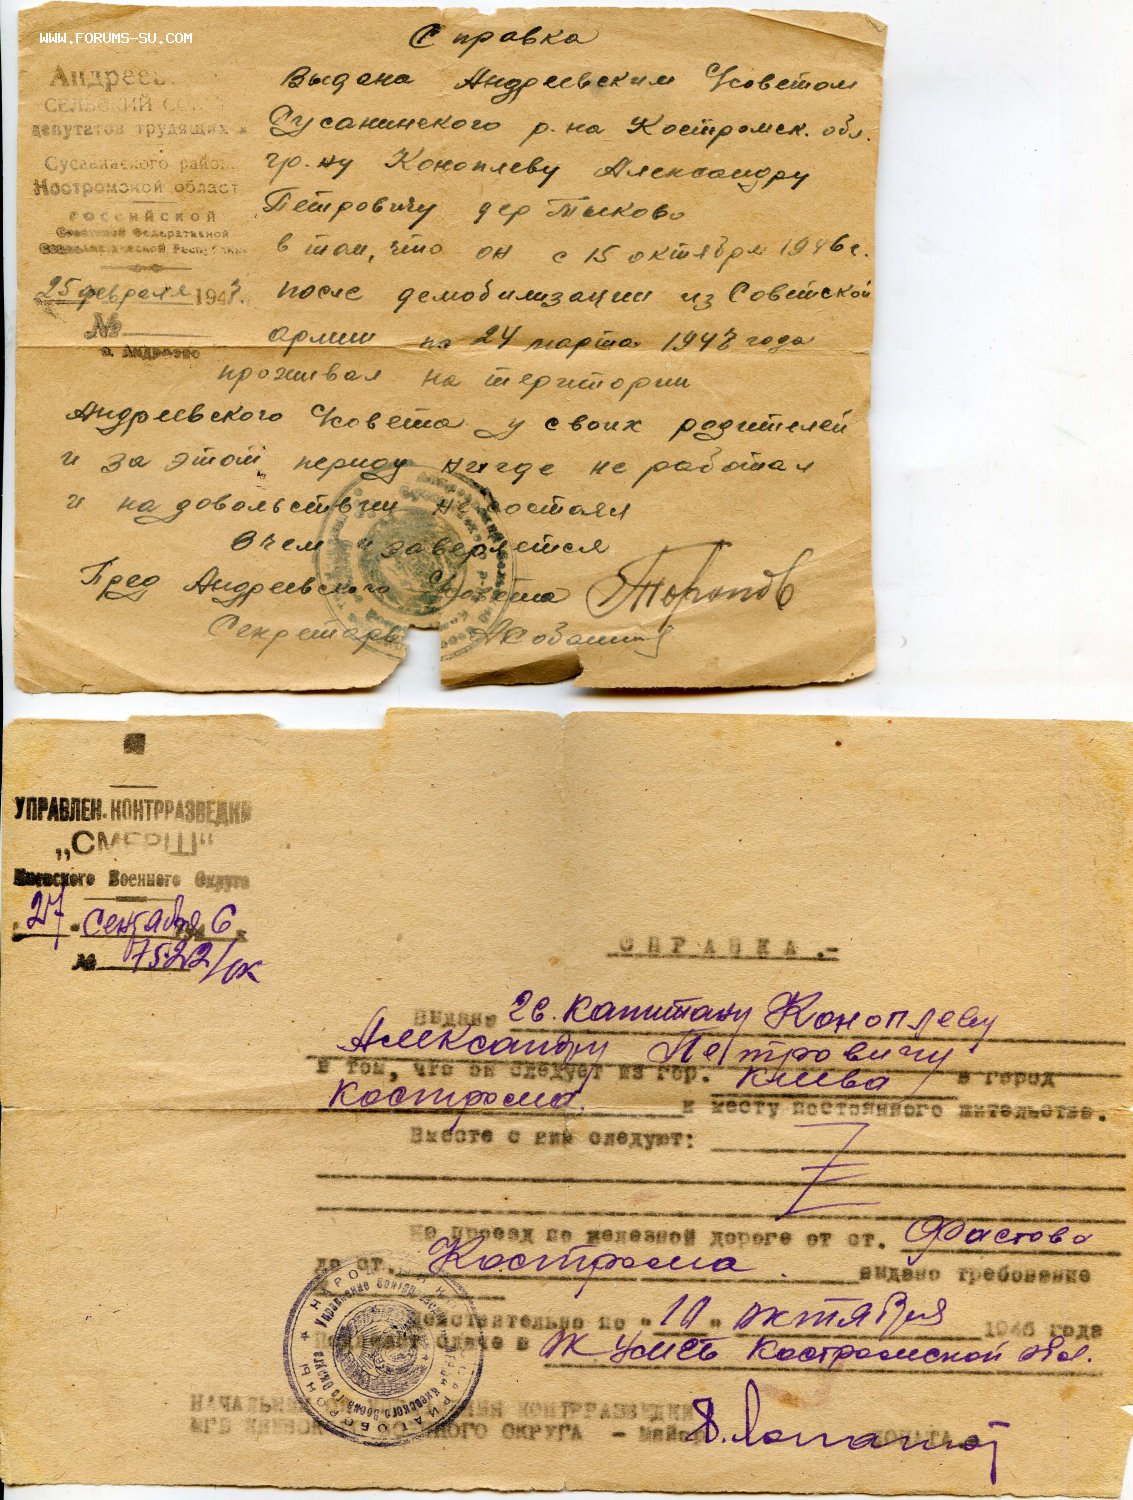 WWW.FORUMS-SU.COM
Справка
Андреев
СЕЛЬСКИЙ СОВ
депутатов трудящихся
Сусанинского район
Костромской област
РОССИЙСКОЙ
Советской Федеративной
Социалистической Республики
25 февраля 1947.
№
д. Андреево
Выдана Андреевским С/советом
Сусанинского р-на Костромск. обл.
гр-ну Коноплеву Александру
Петровичу дер Тыково
в том, что он с 15 октября 1946 г.
после демобилизации из Советской
армии по 24 марта 1947 года
проживал на територии
Андреевского С/совета у своих родителей
и за этот период нигде не работал
и на довольствии не состоял
В чем и заверяется
Пред Андреевского С/совета Торопов
Секретарь
УПРАВЛЕН. КОНТРРАЗВЕДКИ
„СМЕРШ“
Киевского Военного Округа
27 сентября 1946
№ 7522/ок
СПРАВКА.-
Выдана гв. капитану Коноплеву
Александру Петровичу
в том, что он следует из гор. Киева в город
Кострома к месту постоянного жительства.
Вместе с ним следуют: Z
На проезд по железной дороге от ст. Фастова
до ст. Кострома. выдано требование
Действительно по "10" октября 1946 года
Подлежит сдаче в ОК УМГБ Костромской обл.
НАЧАЛЬНИК КОНТРРАЗВЕДКИ
МГБ КИЕВСКОГО ВОЕННОГО ОКРУГА - Майор